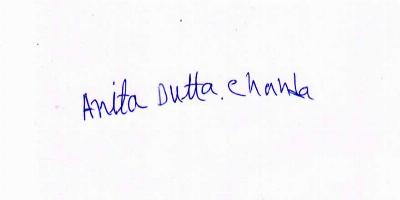 Anita Dutta. Chanda